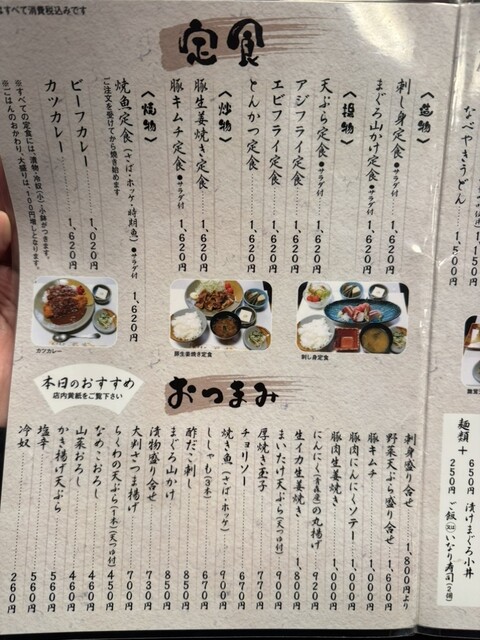 はすべて消費税込みです
なべやきうどん
1,150円
1,500円
麺類+
650円 漬けまぐろ小丼
250円 ご飯又はいなり寿司(2個)
定食
〈造物〉
刺し身定食●サラダ付 1,620円
まぐろ山かけ定食●サラダ付 1,620円
〈揚物〉
天ぷら定食●サラダ付 1,620円
アジフライ定食 1,620円
エビフライ定食 1,620円
とんかつ定食 1,620円
〈炒物〉
豚生姜焼き定食 1,620円
豚キムチ定食●サラダ付 1,620円
〈焼物〉
焼魚定食(さば・ホッケ・時期魚)●サラダ付 1,620円
ご注文を受けてから焼き始めます
ビーフカレー 1,020円
カツカレー 1,620円
※すべての定食には、漬物・冷奴(小)・小鉢がつきます。
※ごはんのおかわり、大盛りは、100円増しとなります。
刺し身定食
豚生姜焼き定食
カツカレー
本日のおすすめ
店内黄紙をご覧下さい
おつまみ
刺身盛り合せ 1,800円より
野菜天ぷら盛り合せ 1,600円
豚キムチ 1,000円
豚肉にんにくソテー 1,000円
豚肉生姜焼き 1,000円
にんにく(青森産)の丸揚げ 920円
生イカ生姜焼き 1,800円
まいたけ天ぷら(天つゆ付) 900円
厚焼き玉子 770円
チョリソー 670円
焼き魚(さば・ホッケ) 900円
ししゃも(3本) 670円
酢だこ刺し 850円
まぐろ山かけ 850円
漬物盛り合せ 730円
大判さつま揚げ 700円
ちくわの天ぷら(1本)(天つゆ付) 455円
なめこおろし 460円
山菜おろし 460円
かき揚げ天ぷら 560円
塩辛 560円
冷奴 260円